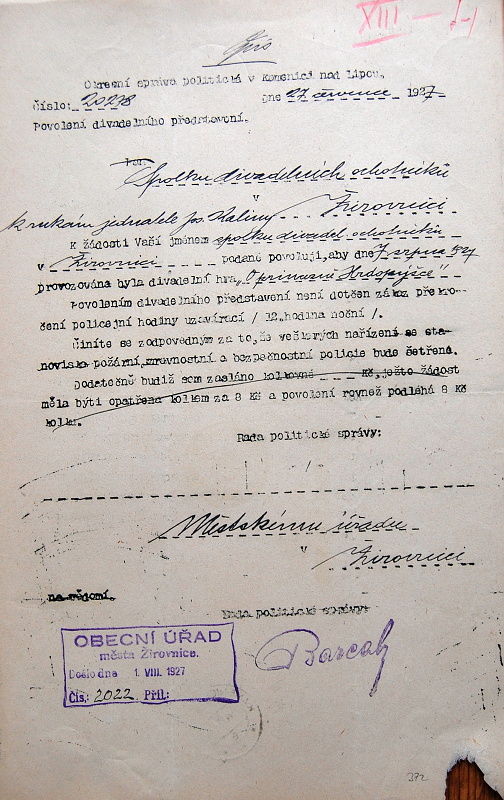 XIII - 
Okresní správa politická v Kamenici nad Lipou,
Číslo: 20278 Dne 27 července 1927.
Povolení divadelního představení.
Spolku divadelních ochotníků
v
k rukám jednatele ps. Kaliny Žirovnici
K žádosti Vaší jménem spolku divadel. ochotníků
v Žirovnici podané povoluji, aby dne 7 srpna
provozována byla divadelní hra "O princezně Hrdopyšce"
Povolením divadelního představení není dotčen zákaz překro-
čení policejní hodiny uzavírací / 12. hodina noční /.
Činíte se zodpovědným za to, že veškerých nařízení se sta-
noviska požární, mravnostní a bezpečnostní policie bude šetřeno.
Dodatečně budiž sem zasláno kolkovné Kč, ježto žádost
měla býti opatřena kolkem za 8 Kč a povolení rovněž podléhá 8 Kč
kolku.
Rada politické správy:
/
Městskému úřadu
v
Žirovnici
na vědomí.
Rada politické správy:
OBECNÍ ÚŘAD
města Žirovnice.
Došlo dne 1. VIII. 1927
Čís.: 2022 Příl.:
372